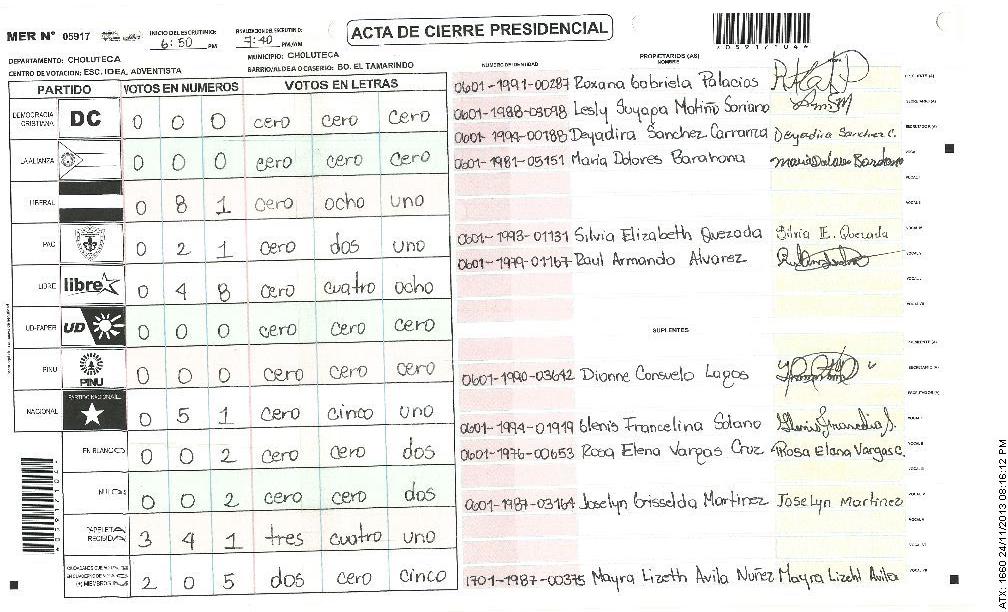 MER N° 05917
INICIO DEL ESCRUTINIO
6:50 PM
7:40 PM/AM
ACTA DE CIERRE PRESIDENCIAL
DEPARTAMENTO: CHOLUTECA
MUNICIPIO: CHOLUTECA
CENTRO DE VOTACION: ESC. IDEA, ADVENTISTA
BARRIO/ALDEA O CASERIO: BO. EL TAMARINDO
PARTIDO VOTOS EN NUMEROS VOTOS EN LETRAS
DEMOCRACIA CRISTIANA DC 0 0 0 cero cero cero
LA ALIANZA 0 0 0 cero cero cero
LIBERAL 0 8 1 cero ocho uno
PAC 0 2 1 cero dos uno
LIBRE libre 0 4 8 cero cuatro ocho
UD-FAPER UD 0 0 0 cero cero cero
PINU PINU 0 0 0 cero cero cero
NACIONAL PARTIDO NACIONAL 0 5 1 cero cinco uno
EN BLANCO 0 0 2 cero cero dos
NULOS 0 0 2 cero cero dos
PAPELETAS RECIBIDAS 3 4 1 tres cuatro uno
2 0 5 dos cero cinco
NUMERO DE IDENTIDAD
PROPIETARIOS (AS)
NOMBRE
0601-1991-00287 Roxana Gabriela Palacios
0601-1988-03098 Lesly Suyapa Motiño Soriano
0601-1994-00188 Deyadira Sanchez Carranza Deyadira Sanchez C.
0601-1981-05151 Maria Dolores Barahona
0601-1993-01131 Silvia Elizabeth Quezada Silvia E. Quezada
0601-1979-01167 Raul Armando Alvarez
SUPLENTES
0601-1990-03642 Dionne Consuelo Lagos
0601-1994-01919 Glenis Francelina Solano
0601-1976-00653 Rosa Elena Vargas Cruz Rosa Elena Vargas C.
0601-1987-03164 Joselyn Grisselda Martinez Joselyn Martinez
1701-1987-00375 Mayra Lizeth Avila Nuñez Mayra Lizeht Avila
ATX: 1660 24/11/2013 08:16:12 PM